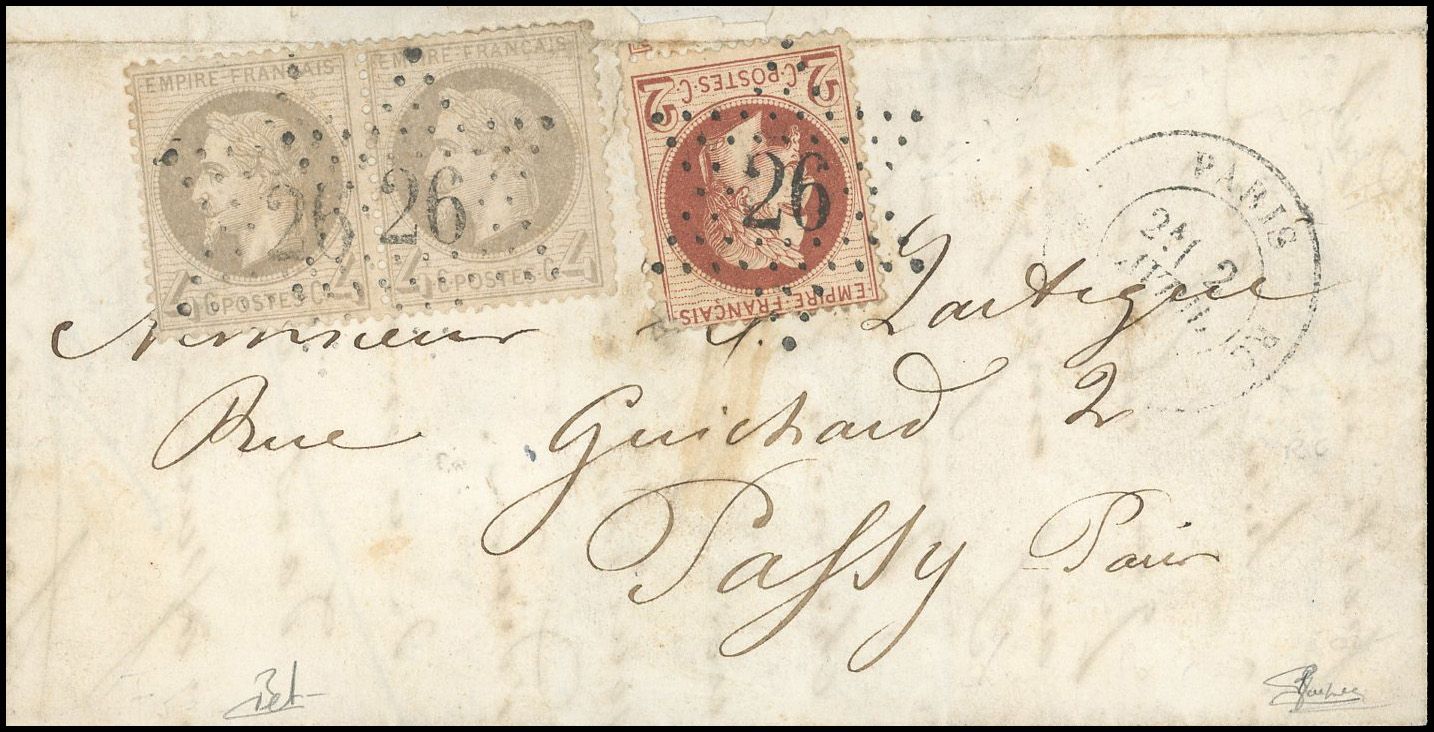 EMPIRE FRANÇAIS EMPIRE FRANÇAIS
26 26
4 C·POSTES·C 4 4 C·POSTES·C 4
2 C·POSTES·C 2
26
EMPIRE FRANÇAIS
PARIS
2
Monsieur J. Lartigue
Rue Guichard 2
Passy Paris